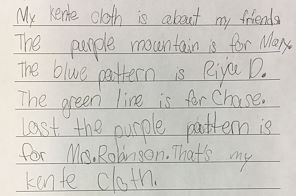 My kente cloth is about my friends
The purple mountain is for Mary.
The blue pattern is Riju D.
The green line is for Chase.
Last the purple pattern is
for Mrs. Robinson. That's my
kente cloth.